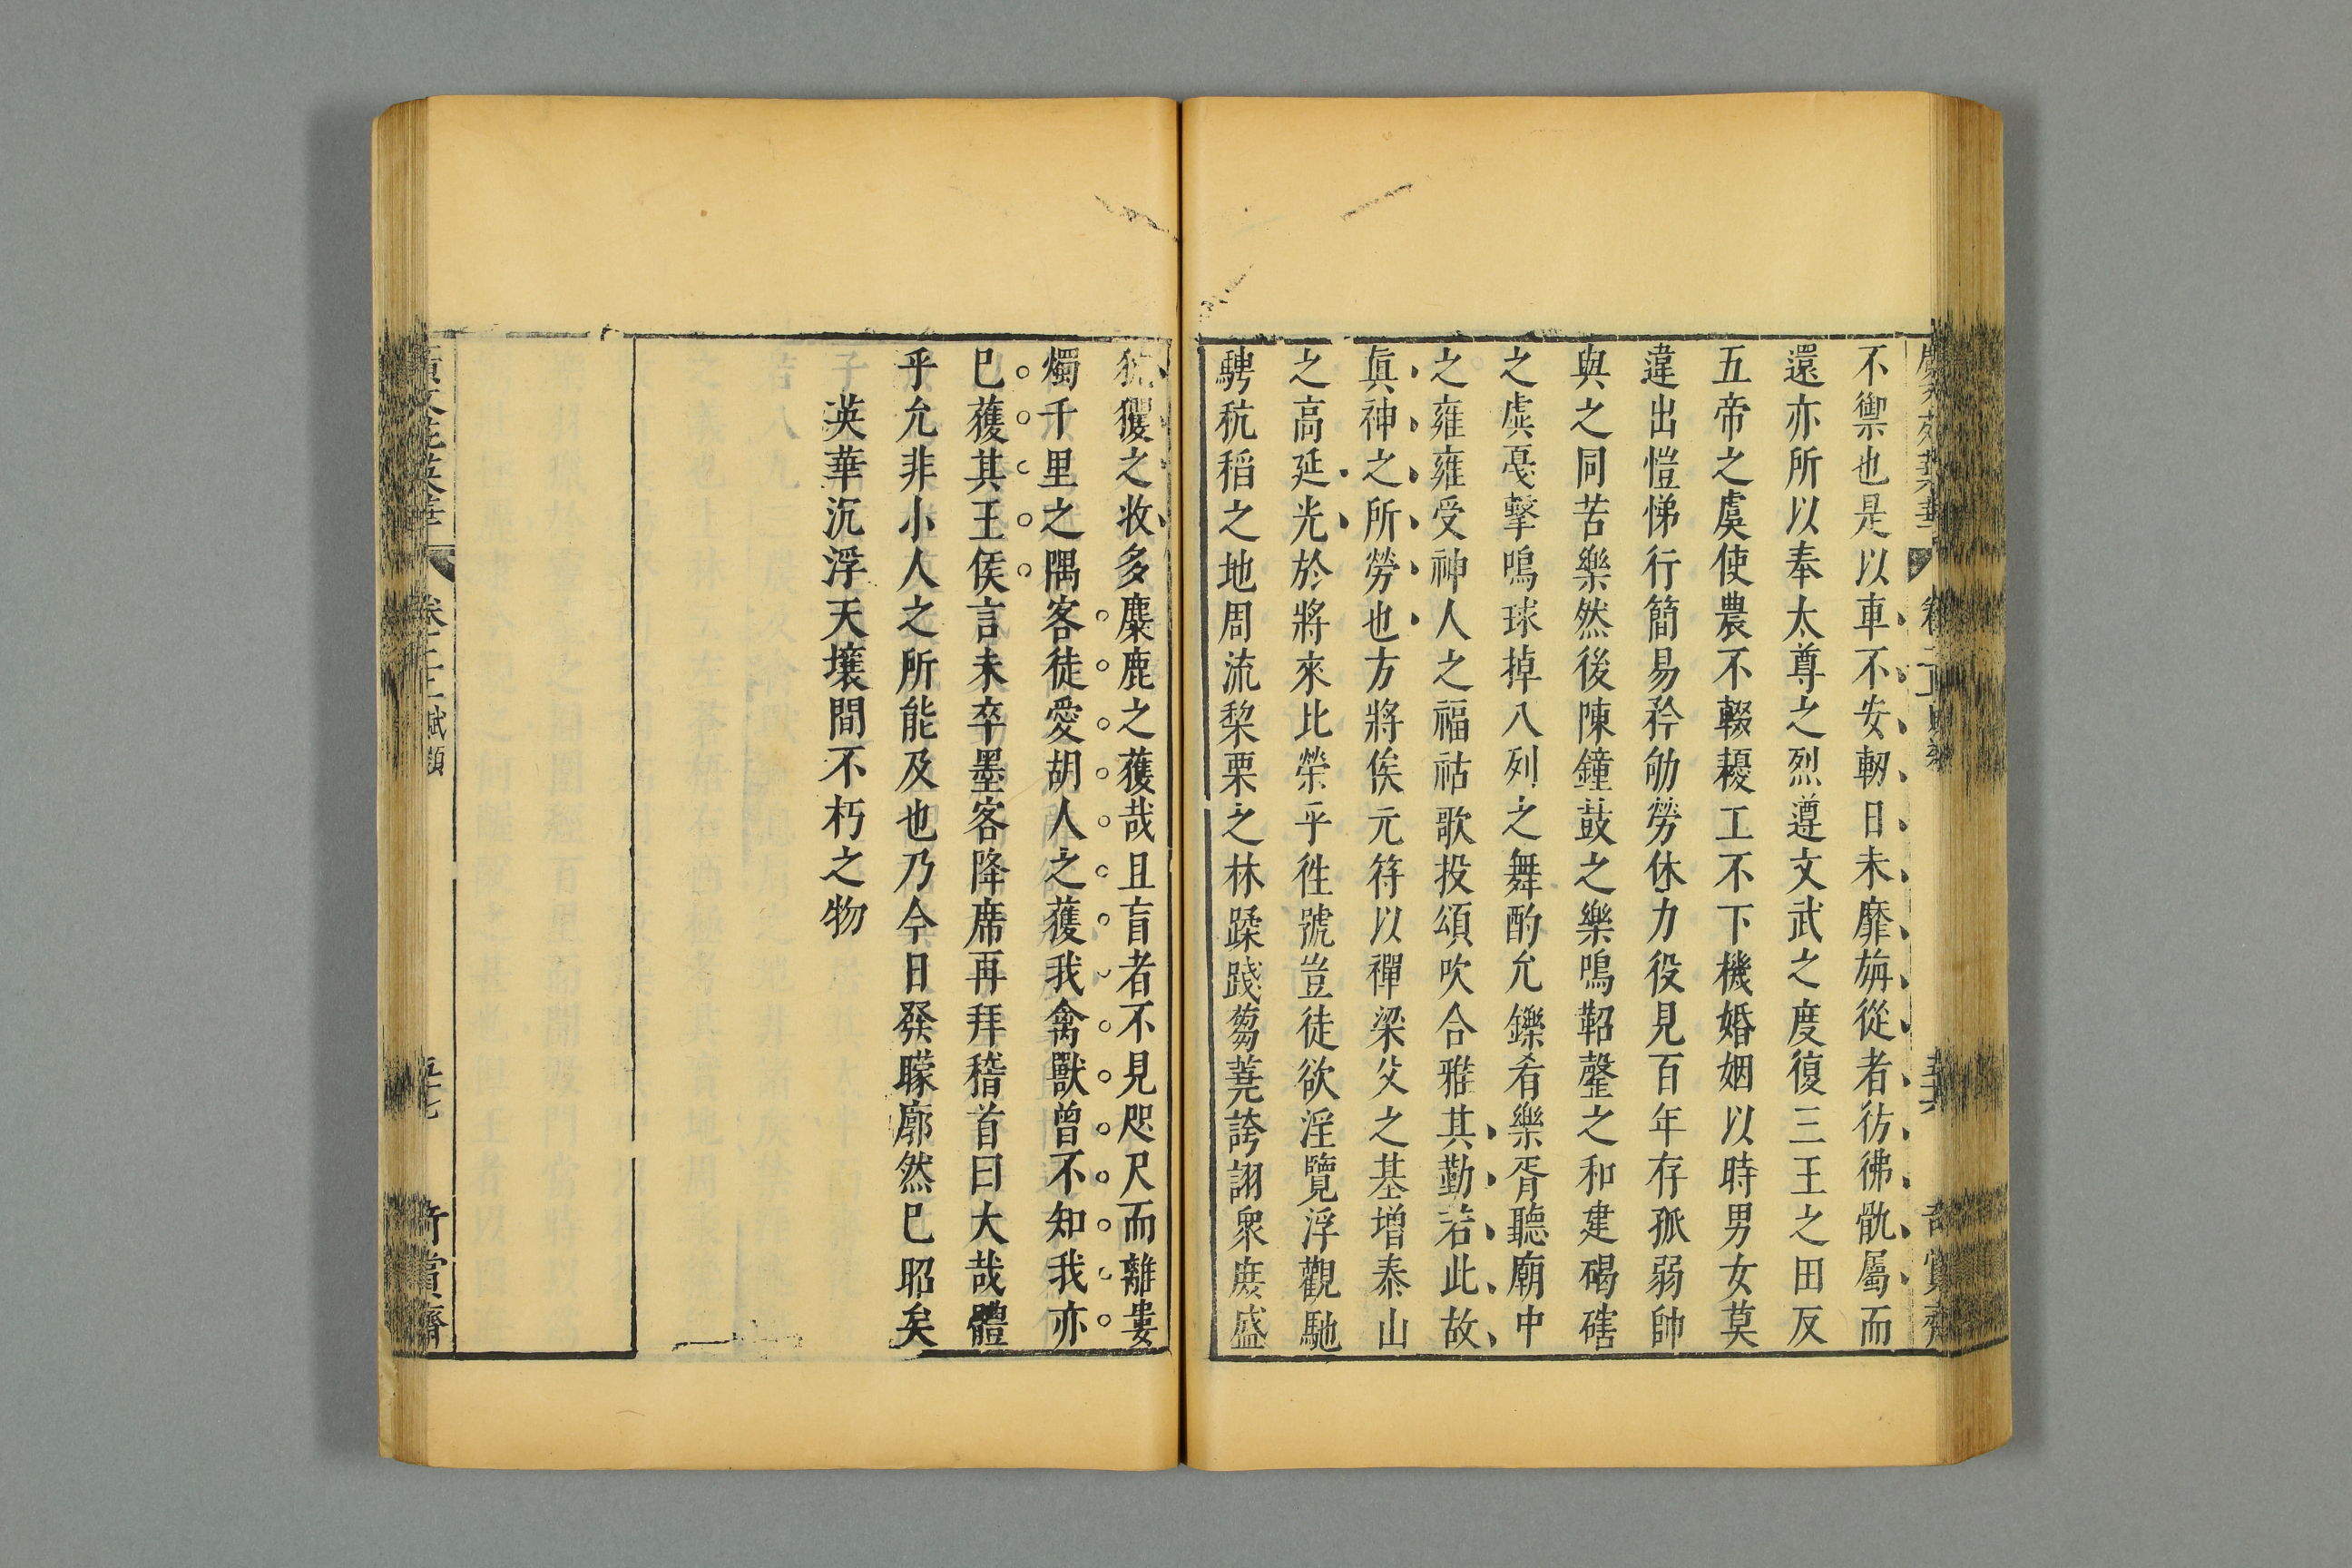 不禦也是以車不安軔日未靡旃從者彷彿骩屬而
還亦所以奉太尊之烈遵文武之度復三王之田反
五帝之虞使農不輟耰工不下機婚姻以時男女莫
違出愷悌行簡易矜劬勞休力役見百年存孤弱帥
與之同苦樂然後陳鐘鼓之樂鳴鞀磬之和建碣磍
之虡戞擊鳴球掉八列之舞酌允鑠肴樂胥聽廟中
之雍雍受神人之福祜歌投頌吹合雅其勤若此故
眞神之所勞也方將俟元符以禪梁父之基增泰山
之高延光於將來比榮乎徃號豈徒欲淫覽浮觀馳
騁秔稻之地周流棃栗之林蹂踐蒭蕘誇詡衆庶盛
狖玃之收多麋鹿之獲哉且盲者不見咫尺而離婁
燭千里之隅客徒愛胡人之獲我禽獸曾不知我亦
已獲其王侯言未卒墨客降席再拜稽首曰大哉體
乎允非小人之所能及也乃今日發矇廓然已昭矣
英華沉浮天壤間不朽之物
卷二 賦類
五七
奇賞齋